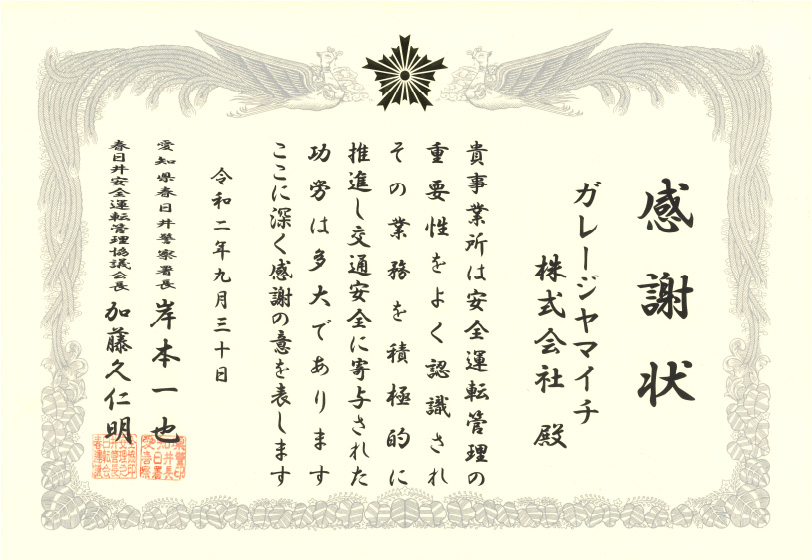 感謝状
ガレージヤマイチ
株式会社 殿
貴事業所は安全運転管理の
重要性をよく認識され
その業務を積極的に
推進し交通安全に寄与された
功労は多大であります
ここに深く感謝の意を表します
令和二年九月三十日
愛知県春日井警察署長 岸本一也
春日井安全運転管理協議会長 加藤久仁明